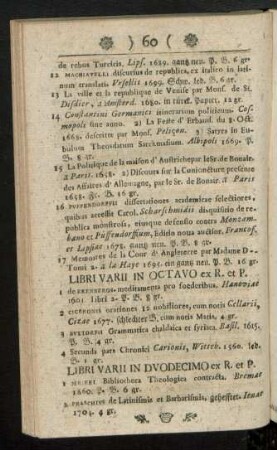 ) 60 (
de rebus Turcicis, Lips. 1689. gantz neu. P. B. 6 gr.
12 MACHIAVELLI discursus de republica, ex italico in lati-
num translatis Veselii 1699. Schw. led. B. 6 gr.
13 La ville et la republique de Venise par Mons. de St.
Disdier, a Amsterd. 1680. in türck. Papier. 12 gr.
14 Constantini Germanici itinerarium politicum. Cos-
mopoli sine anno. 2) La Feste d'Erbaud. du 8. Oct.
1689. descritte par Mons. Pelizon. 3) Satres in Eu-
bulum Theosdatum Sarckmasium. Albipoli 1669. P.
B. 8 gr.
15 La Politique de la maison d'Austriche par le Sr. de Bonair.
à Paris. 1658. 2) Discours sur la Conioncture presente
des Affaires d'Allemagne, par le Sr. de Bonair. à Paris
1658. Fr. B. 16 gr.
16 PUFFENDORFII dissertationes academicae selectiores,
quibus accessit Carol. Scharschmidii disquisitio de re-
publica monstrosa, eiusque defensio contra Monzam-
bano et Puffendorfium, Editio nova auctior. Francof.
et Lipsiae 1678. gantz neu. P. B. 8 gr.
17 Memoires de la Cour d'Angleterre par Madame D -
Tomi 2. à la Haye 1695. ein gantz neu. P. B. 16 gr.
LIBRI VARII IN OCTAVO ex R. et P.
1 de meditamenta pro foederibus. Hanoviae
1601. libri 2. P. B. 8 gr.
2 CICERONIS orationes 12 nobiliores, cum notis Cellarii,
Cizae 1677. schlechter B. cum notis Msris. 4 gr.
3 Grammatica chaldaica et syriaca, Basil. 1615.
P. B. 4 gr.
4 Secunda pars Chronici Carionis, Witeb. 1560. led.
B. 1 gr.
LIBRI VARII IN DVODECIMO ex R. et P.
1 Bibliotheca Theologica contracta. Bremae
1660. P. B. 6 gr.
2 de Latinismis et Barbarismis, geheffter. Ienae
1704. 4 gr.